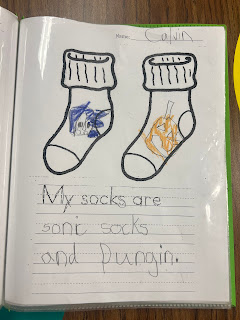 Name: Calvin
My socks are
soni socks
and Pungin.